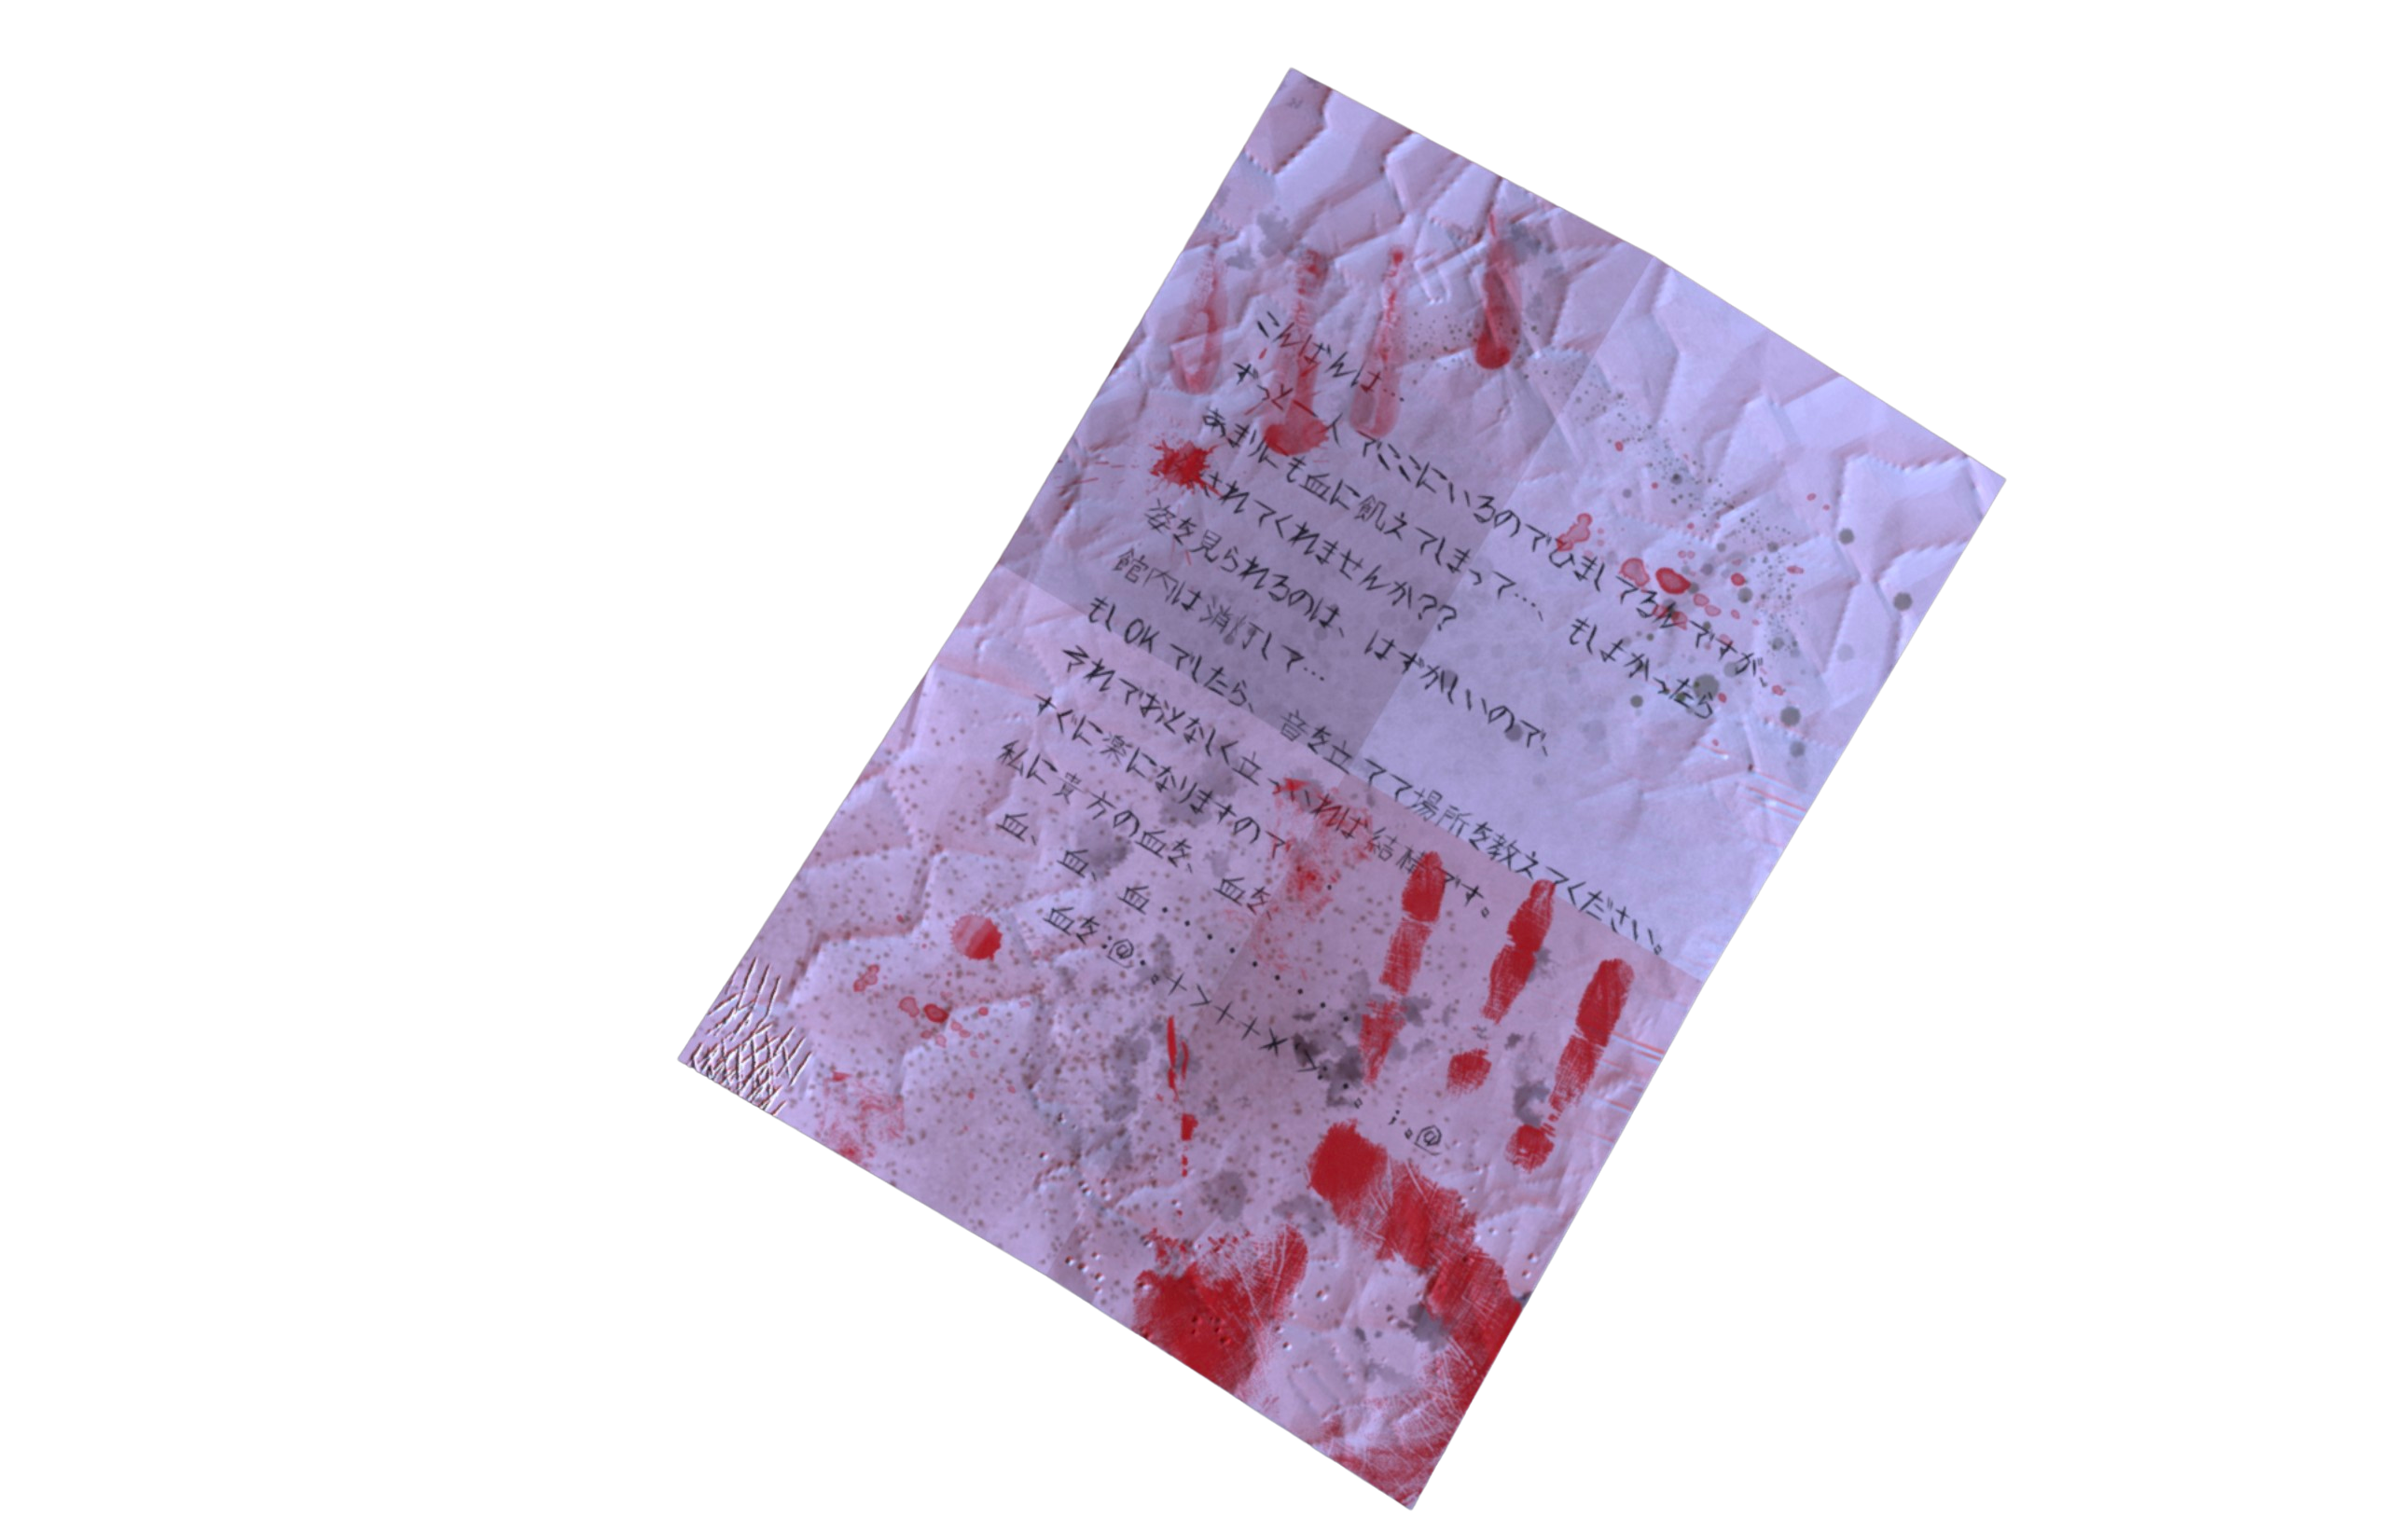 こんばんは…
ずっと一人でここにいるのでひましてるんですが、
あまりにも血に飢えてしまって…、もしよかったら
されてくれませんか??
姿を見られるのは、はずかしいので、
館内は消灯して…
もしOKでしたら、音を立てて場所を教えてください。
それでおとなしく立っていれば結構です。
すぐに楽になりますので
私に貴方の血を、血を、
血、血、血・・・・・・・・・
血を:@・。+>++×>:・。;。@